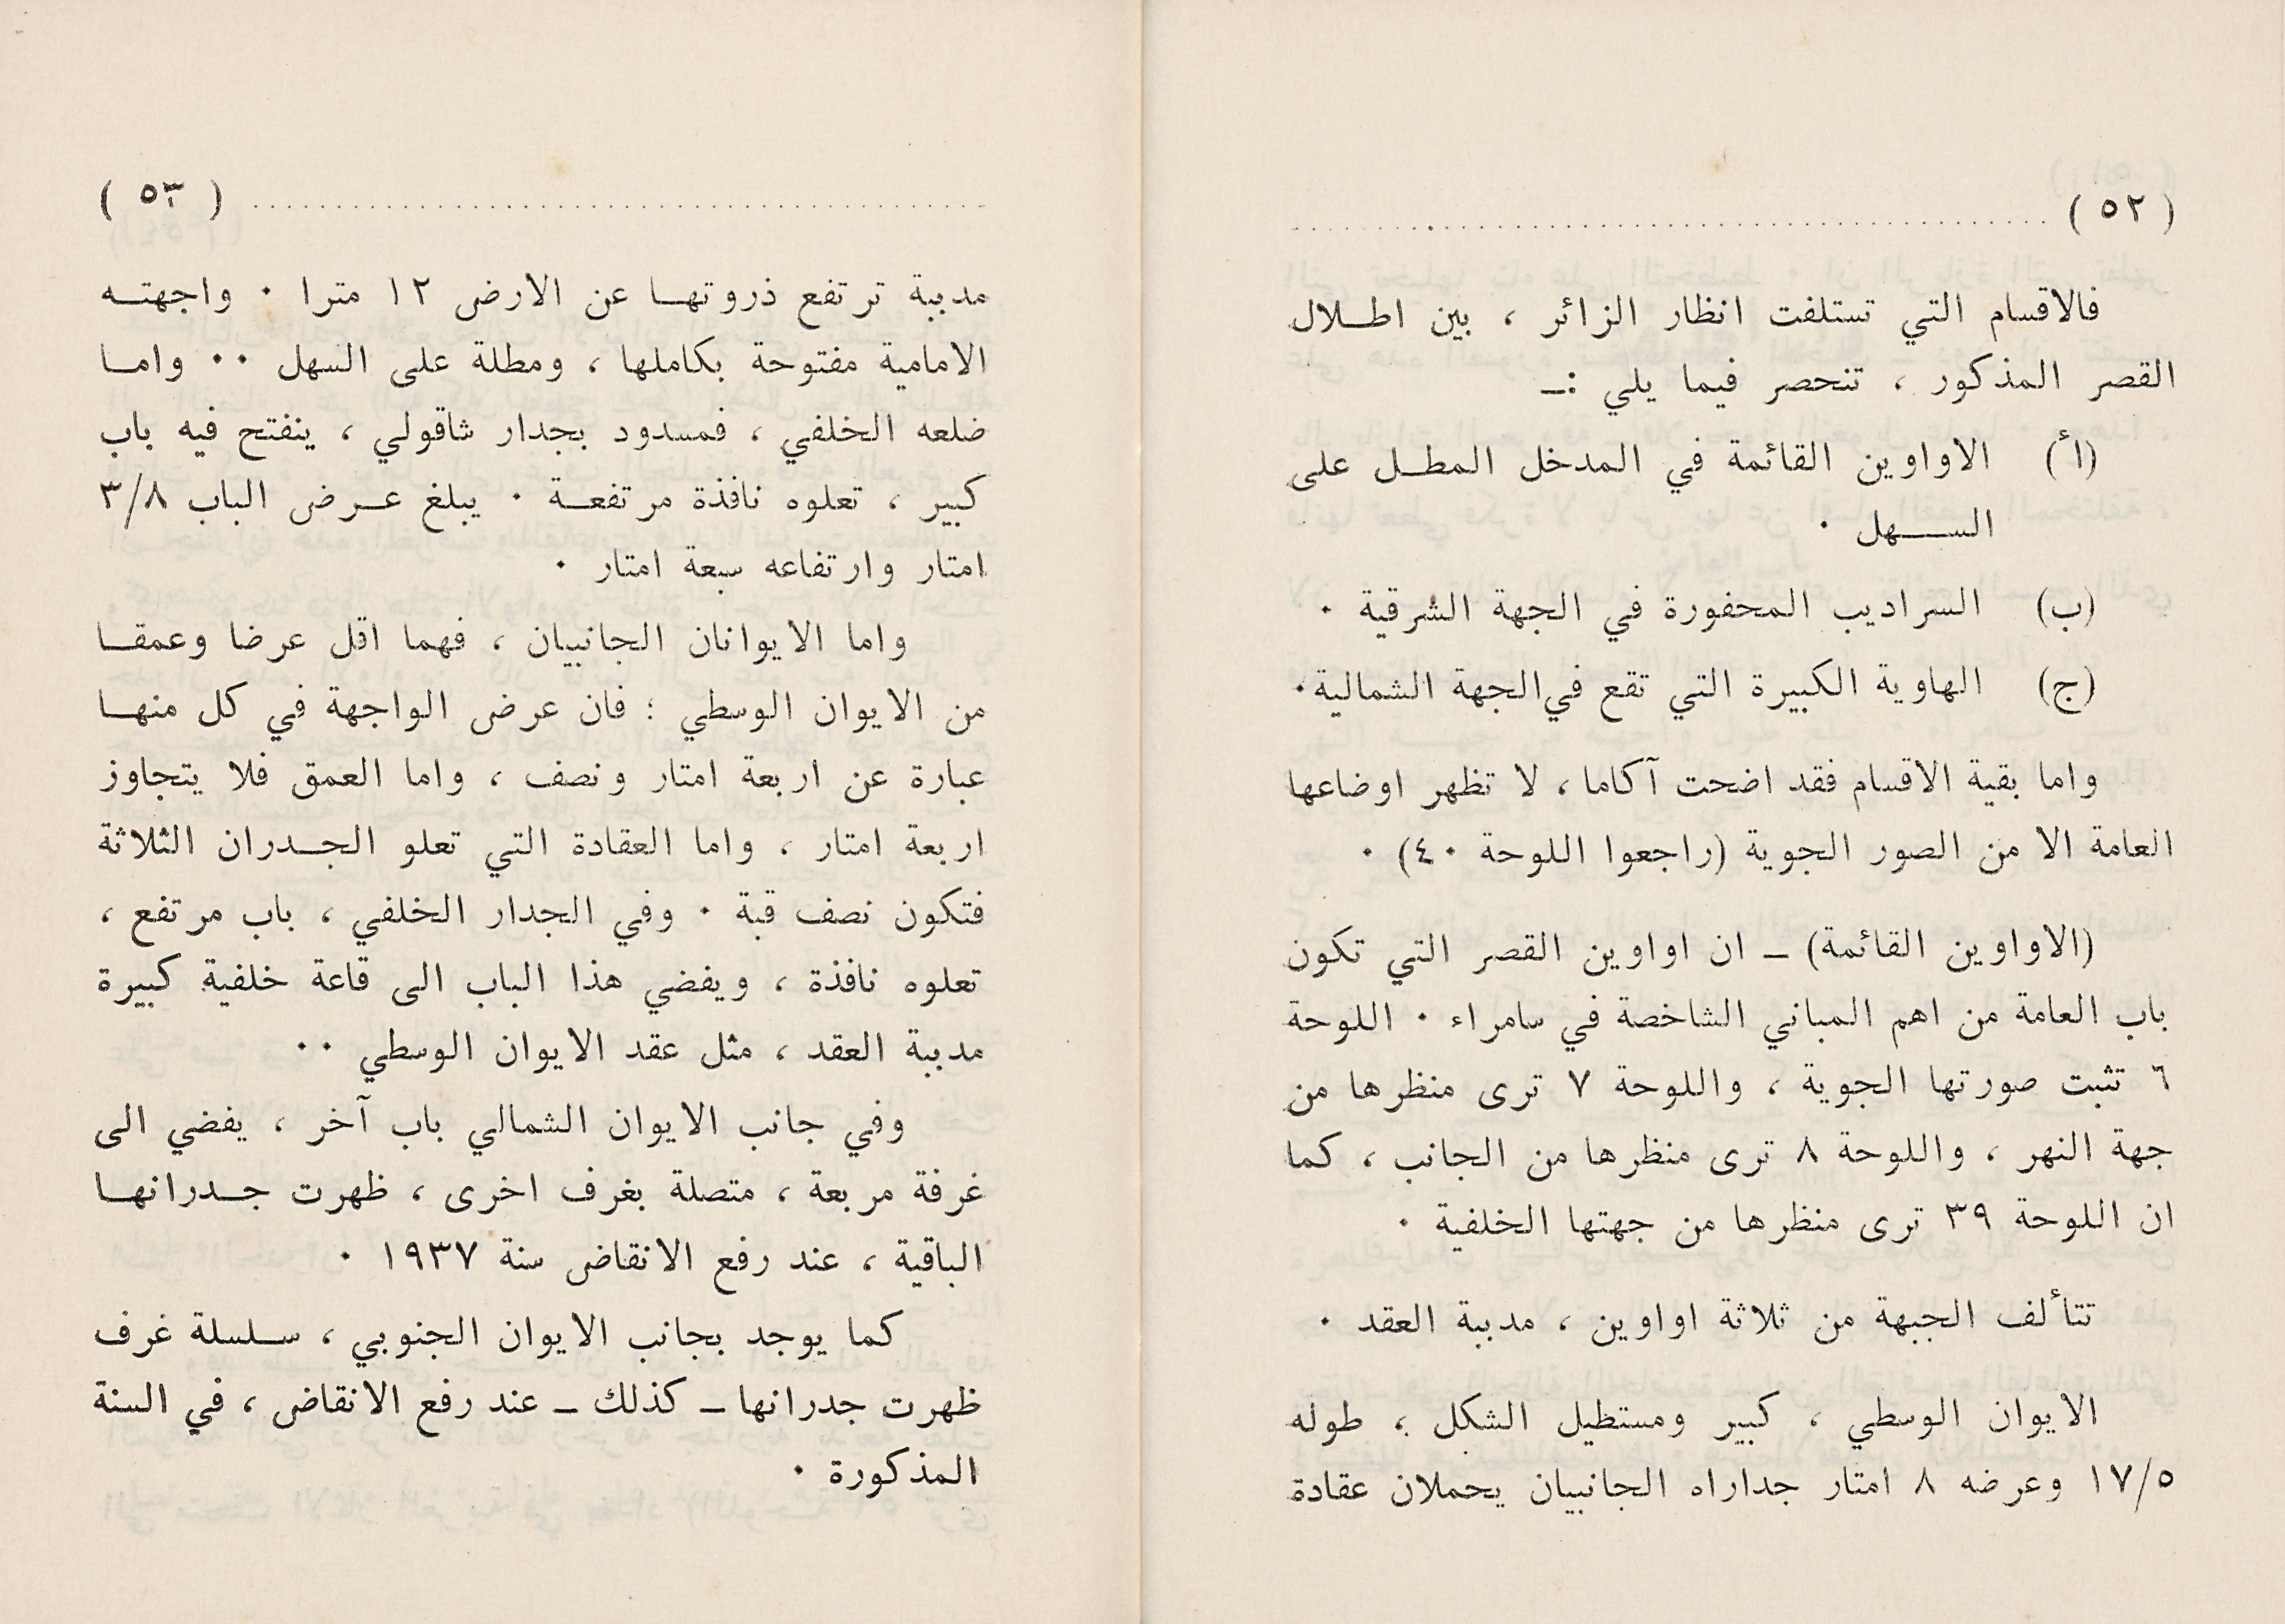 ( ٥٢ )
فالاقسام التي تستلفت انظار الزائر ، بين اطـلال
القصر المذكور ، تنحصر فيما يلي :ـ
(أ) الاواوين القائمة في المدخل المطـل على
الســـهل ٠
(ب) السراديب المحفورة في الجهة الشرقية ٠
(ج) الهاوية الكبيرة التي تقع في الجهة الشمالية ٠
واما بقية الاقسام فقد اضحت آكاما ، لا تظهر اوضاعها
العامة الا من الصور الجوية (راجعوا اللوحة ٤٠) ٠
(الاواوين القائمة) ـ ان اواوين القصر التي تكون
باب العامة من اهم المباني الشاخصة في سامراء ٠ اللوحة
٦ تثبت صورتها الجوية ، واللوحة ٧ ترى منظرها من
جهة النهر ، واللوحة ٨ ترى منظرها من الجانب ، كما
ان اللوحة ٣٩ ترى منظرها من جهتها الخلفية ٠
تتألف الجبهة من ثلاثة اواوين ، مدببة العقد ٠
الايوان الوسطي ، كبير ومستطيل الشكل ؛ طوله
١٧/٥ وعرضه ٨ امتار جداراه الجانبيان يحملان عقادة
( ٥٣ )
مدببة ترتفع ذروتهـا عن الارض ١٢ مترا ٠ واجهتـه
الامامية مفتوحة بكاملها ، ومطلة على السهل ٠٠ وامـا
ضلعه الخلفي ، فمسدود بجدار شاقولي ، ينفتح فيه باب
كبير ، تعلوه نافذة مرتفعـة ٠ يبلغ عـرض الباب ٣/٨
امتار وارتفاعه سبعة امتار ٠
واما الايوانان الجانبيان ، فهما اقل عرضا وعمقـا
من الايوان الوسطي ؛ فان عرض الواجهة في كل منهـا
عبارة عن اربعة امتار ونصف ، واما العمق فلا يتجاوز
اربعة امتار ، واما العقادة التي تعلو الجـدران الثلاثة
فتكون نصف قبة ٠ وفي الجدار الخلفي ، باب مرتفع ،
تعلوه نافذة ، ويفضي هذا الباب الى قاعة خلفية كبيرة
مدببة العقد ، مثل عقد الايوان الوسطي ٠٠
وفي جانب الايوان الشمالي باب آخر ، يفضي الى
غرفة مربعة ، متصلة بغرف اخرى ، ظهرت جـدرانهـا
الباقية ، عند رفع الانقاض سنة ١٩٣٧ ٠
كما يوجد بجانب الايوان الجنوبي ، سـلسلة غرف
ظهرت جدرانها ـ كذلك ـ عند رفع الانقاض ، في السنة
المذكورة ٠